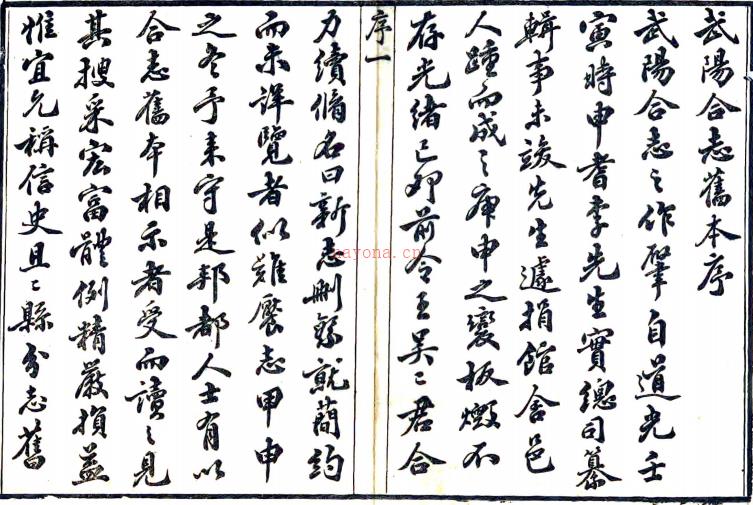 武陽合志舊本序
武陽合志之作肇自道光壬
寅時申耆李先生實總司纂
輯事未竣先生遽捐館舍邑
人踵而成之庚申之變板燬不
存光緒己卯前令王吳二君合
序一
力續脩名曰新志刪繁就簡約
而未詳覽者似難饜志甲申
之冬予来守是邦都人士有以
合志舊本相示者受而讀之見
其搜采宏富體例精嚴損益
惟宜允稱信史且二縣分志舊
nayona.cn